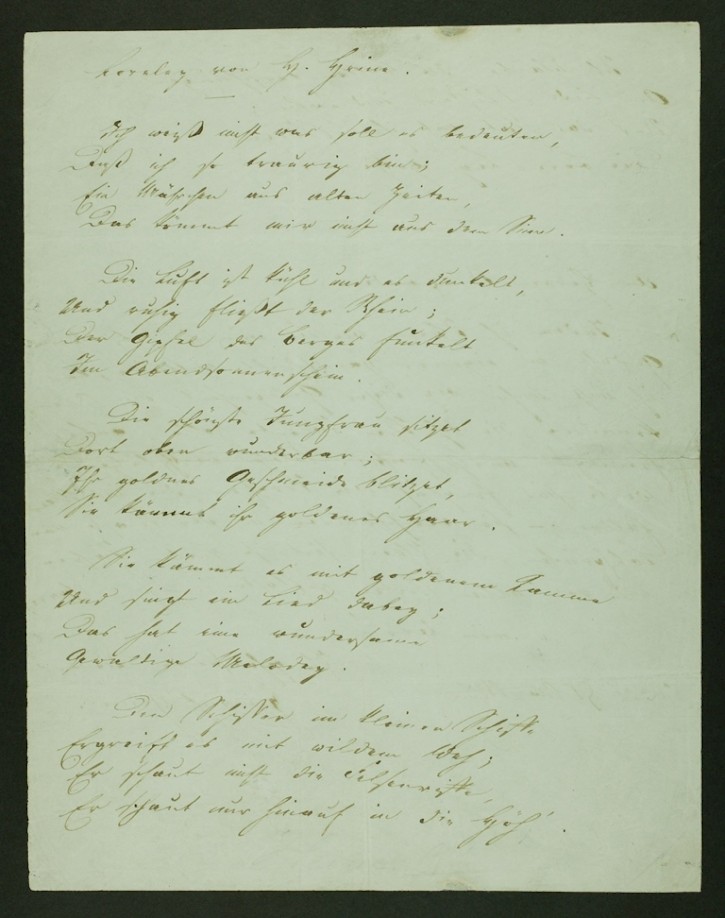 Loreley von H. Heine.
Ich weiß nicht was soll es bedeuten,
Daß ich so traurig bin;
Ein Mährchen aus alten Zeiten,
Das kömmt mir nicht aus dem Sinn.
Die Luft ist kühl und es dunkelt,
Und ruhig fließt der Rhein;
Der Gipfel des Berges funkelt
Im Abendsonnenschein.
Die schönste Jungfrau sitzet
Dort oben wunderbar;
Ihr goldnes Geschmeide blitzet,
Sie kämmt ihr goldenes Haar.
Sie kämmt es mit goldenem Kamme
Und singt ein Lied dabey;
Das hat eine wundersame
Gewaltige Melodey.
Den Schiffer im kleinen Schiffe
Ergreift es mit wildem Weh;
Er schaut nicht die Felsenriffe,
Er schaut nur hinauf in die Höh'.